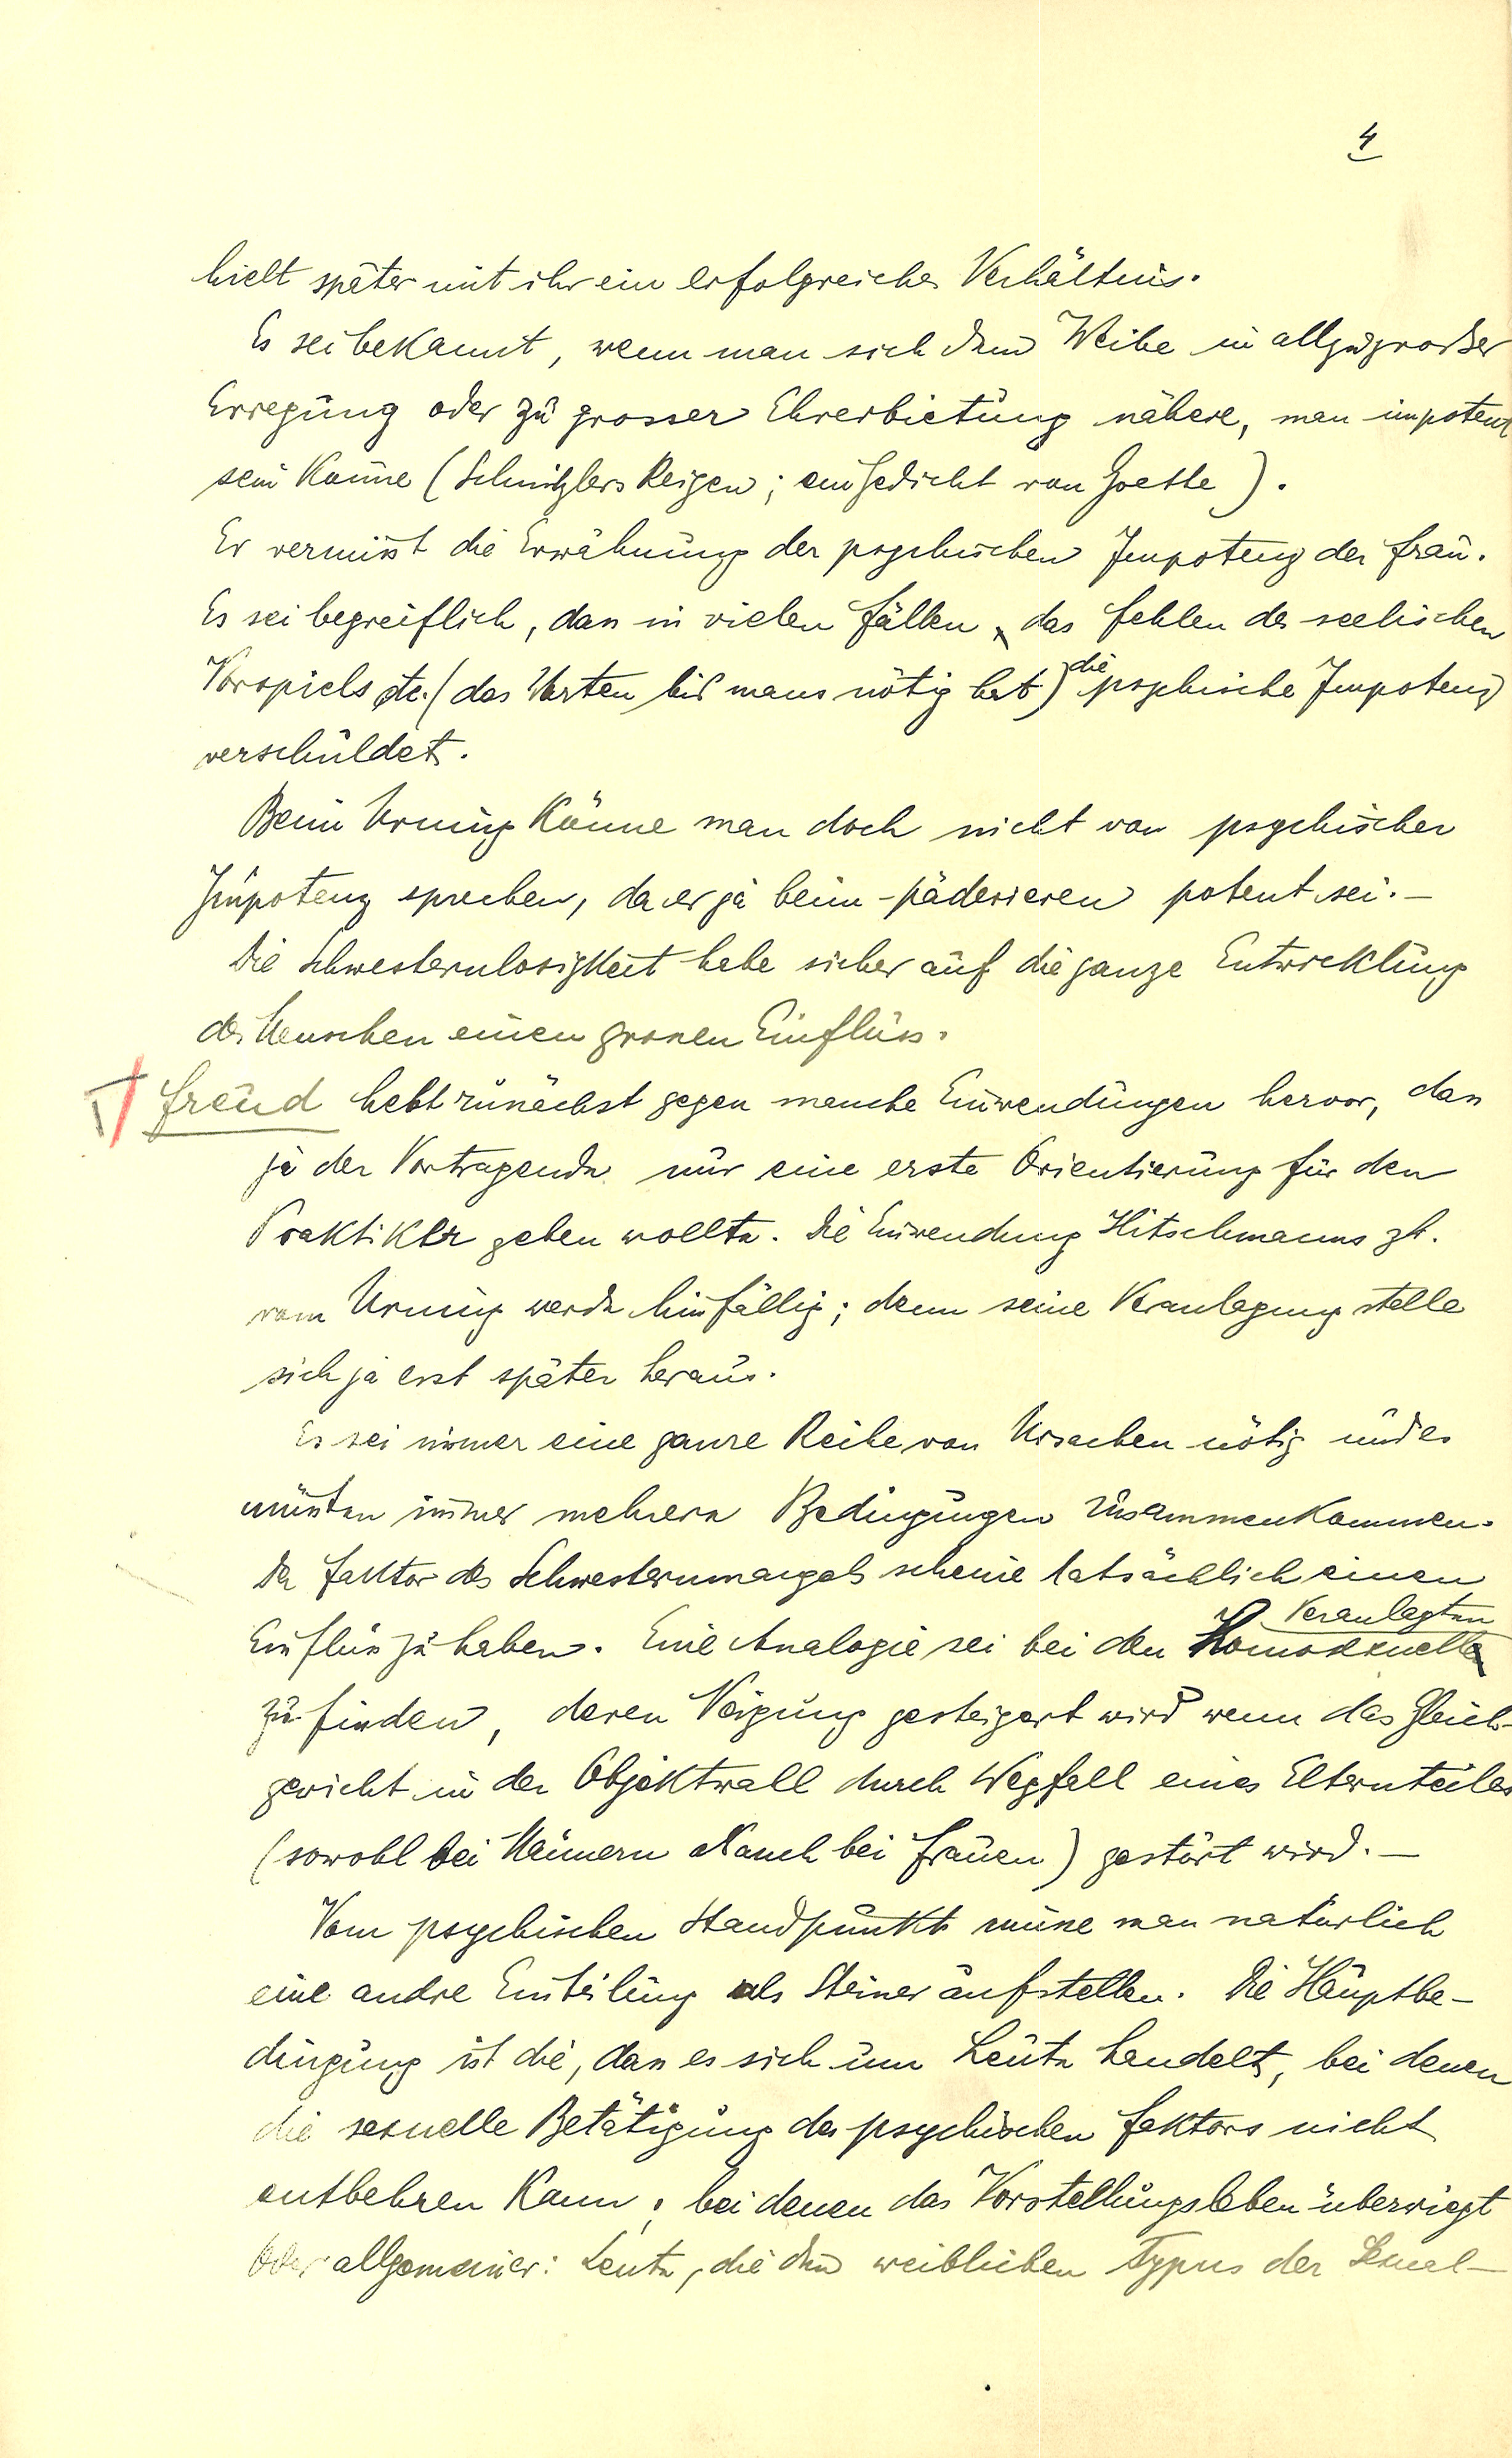 4
hielt später mit ihr ein erfolgreiches Verhältnis.
Es sei bekannt, wenn man sich dem Weibe in allzugroßer
Erregung oder zu grosser Ehrerbietung nähere, man impotent
sein Könne (Schnitzlers Reigen; ein Gedicht von Goethe).
Er vermisst die Erwähnung der psychischen Impotenz der Frau.
Es sei begreiflich, dass in vielen Fällen das Fehlen des seelischen
Vorspiels etc. (das Warten bis mans nötig hat) die psychische Impotenz
verschuldet.
Beim Urning Könne man doch nicht von psychischer
Impotenz sprechen, da er ja beim päderieren potent sei. –
Die Schwesternlosigkeit habe sicher auf die ganze Entwicklung
des Menschen einen grossen Einfluss.
Freud hebt zunächst gegen manche Einwendungen hervor, dass
ja der Vortragende nur eine erste Orientierung für den
Praktiker geben wollte. Die Einwendung Hitschmanns zb.
vom Urning werde hinfällig; denn seine Veranlagung stelle
sich ja erst später heraus.
Es sei immer eine ganze Reihe von Ursachen nötig und es
müssten immer mehrere Bedingungen zusammenkommen.
Der Faktor des Schwesternmangels scheine tatsächlich einen
Einfluss zu haben. Eine Analogie sei bei den Homosexuell Veranlagten
zu finden, deren Neigung gesteigert wird wenn das Gleich-
gewicht in der Objektwall durch Wegfall eines Elternteiles
(sowohl bei Männern als auch bei Frauen) gestört wird. –
Vom psychischen Standpunkt müsse man natürlich
eine andre Einteilung als Steiner aufstellen. Die Hauptbe-
dingung ist die, dass es sich um Leute handelt, bei denen
die sexuelle Betätigung des psychischen Faktors nicht
entbehren Kann; bei denen das Vorstellungsleben überwiegt
Oder allgemeiner: Leute, die den weiblichen Typus der Sexual-